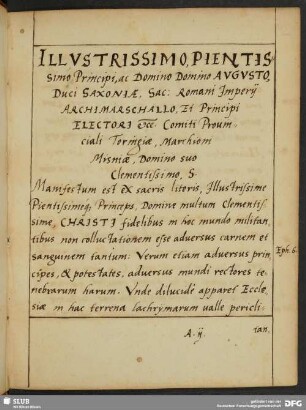 ILLVSTRISSIMO, PIENTIS
simo Principi, ac Domino Domino AVGVSTO,
Duci SAXONIÆ, Sac: Romani Imperij
ARCHIMARSCHALLO, Et Principi
ELECTORI &cc Comiti Provin
ciali Toringiæ, Marchioni
Mysniæ, Domino suo
Clementissimo, S.
Manifestum est ex sacris literis, Illustrissime
Pientissimeq; Princeps, Domine multum Clementis
sime, CHRISTI fidelibus in hoc mundo militan
tibus non colluctationem esse adversus carnem et
sanguinem tantum. Verum etiam adversus prin
cipes, & potestates, adversus mundi rectores te
nebrarum harum. Vnde dilucide apparet Eccle
siæ in hac terrena lachrymarum ualle pericli:
Eph: 6.
A. ij.
tan,
SLUB
DFG